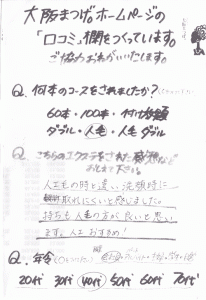 大阪まつげ。ホームページの
「口コミ」欄をつくっています。
ご協力おねがいいたします。
Q. 何本のコースをされましたか？
60本・100本・付け放題
ダブル・人毛・人毛ダブル
Q. こちらのエクステをされた
おしえて下さい。
人工毛の時と違い、洗顔時に
取れにくいと感じました。
持ちも人毛の方が良いと思い
ます。人工おすすめ！
Q. 年令
20代 30代 40代 50代 60代 70代